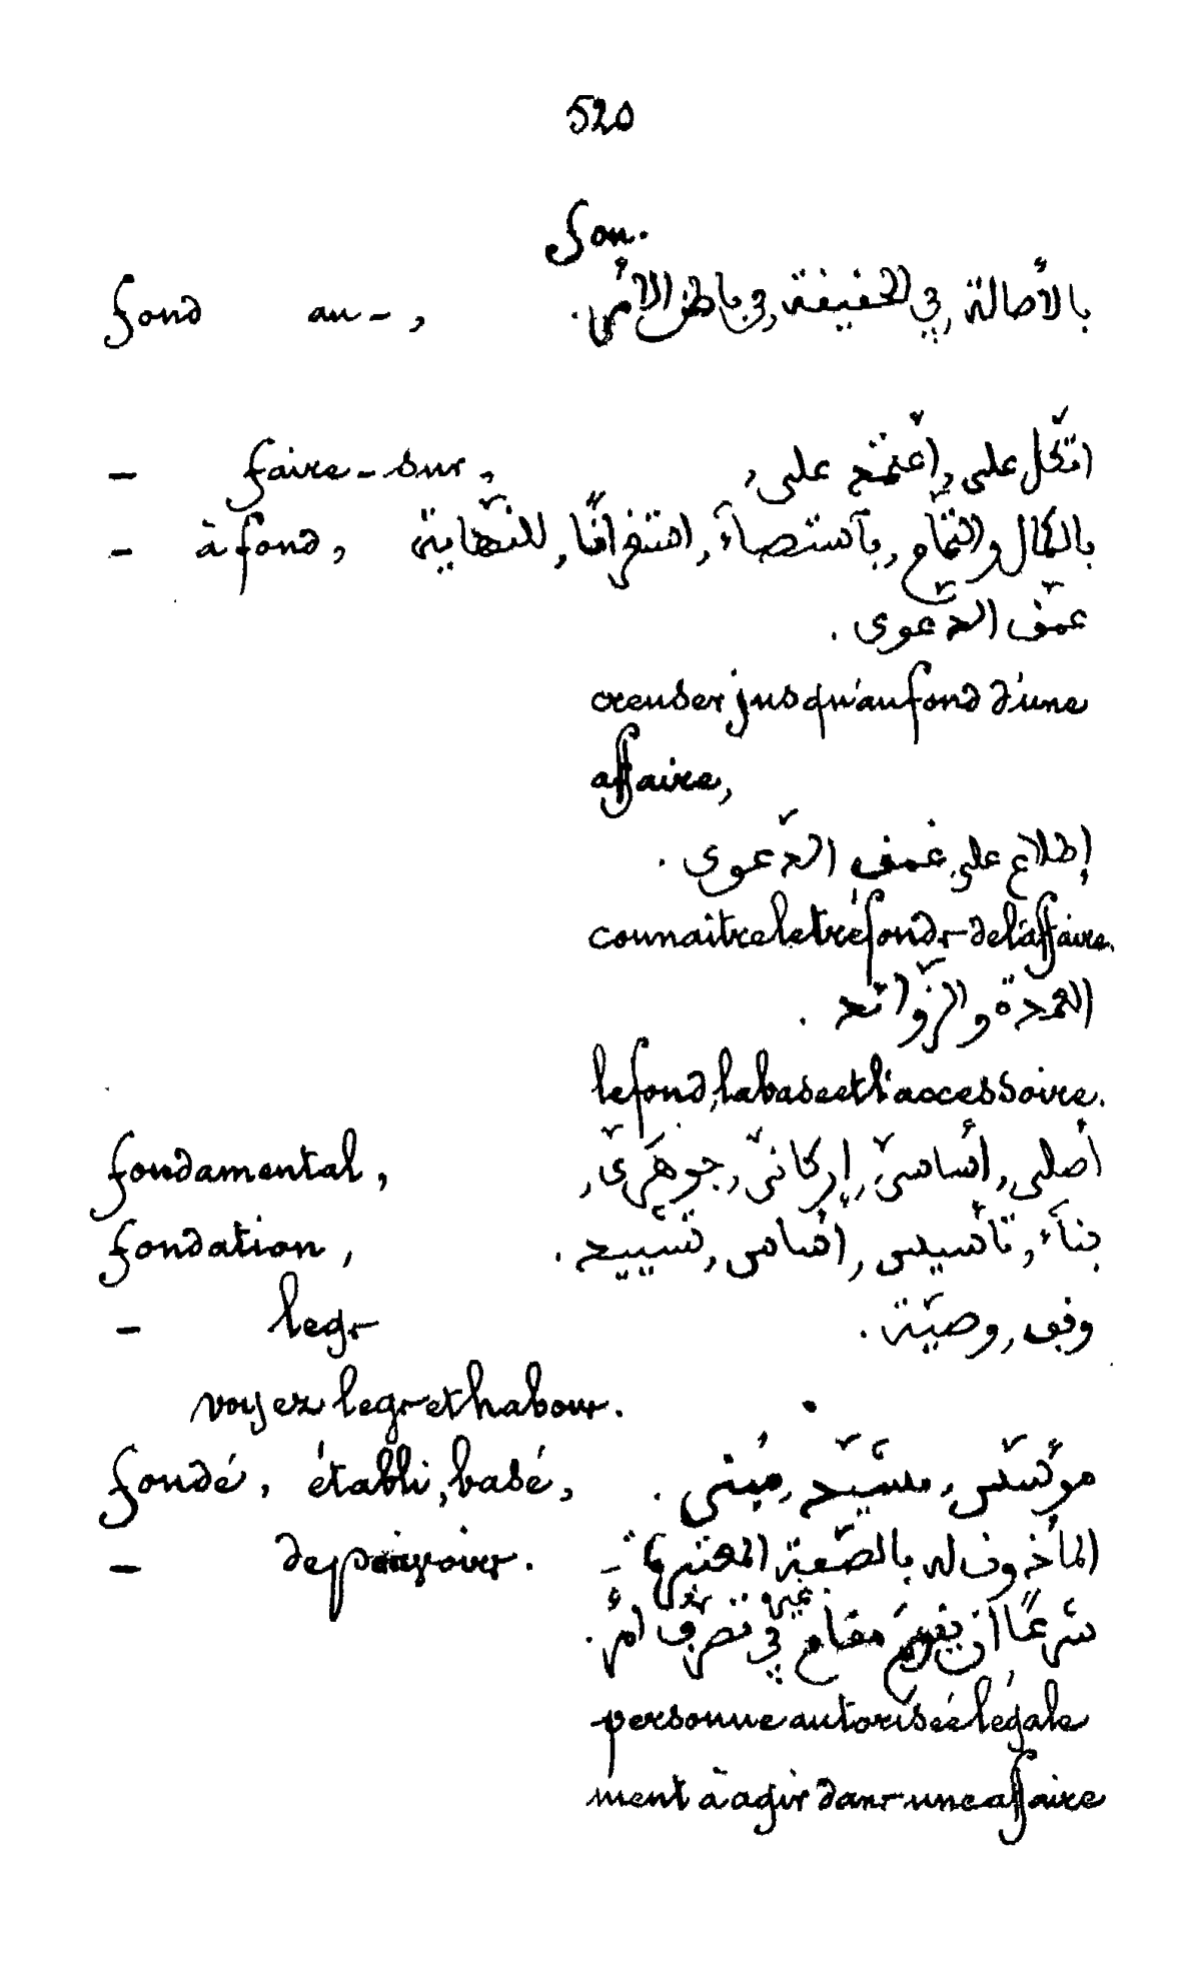 520
fon.
fond au-, بالأصالة, في الحقيقة, في باطن الأمر.
- faire-sur, اتّكل على, اعتمد على,
- à fond, بالكمال والتّمام, بآستقصآء, استغراقًا, للنّهاية
عمّق الدّعوى.
creuser jusqu'au fond d'une
affaire,
إطلاع على عمق الدّعوى.
connaitre le tréfonds de l'affaire.
العمدة والزّوائد.
le fond, la base et l'accessoire.
fondamental, أصلي, أساسيّ, إركانيّ, جوهريّ,
fondation, بنآء, تأسيس, أساس, تشييد.
- legs وقف, وصيّة.
voyez legs et habous.
fondé, établi, basé, مؤسّس, مشيّد, مبنى.
- de pouvoirs. المأذون له بالصّفة المعتبرة
شرعًا ان يقوم مقام غيره في تصرّف أمر.
personne autorisée légale
ment à agir dans une affaire